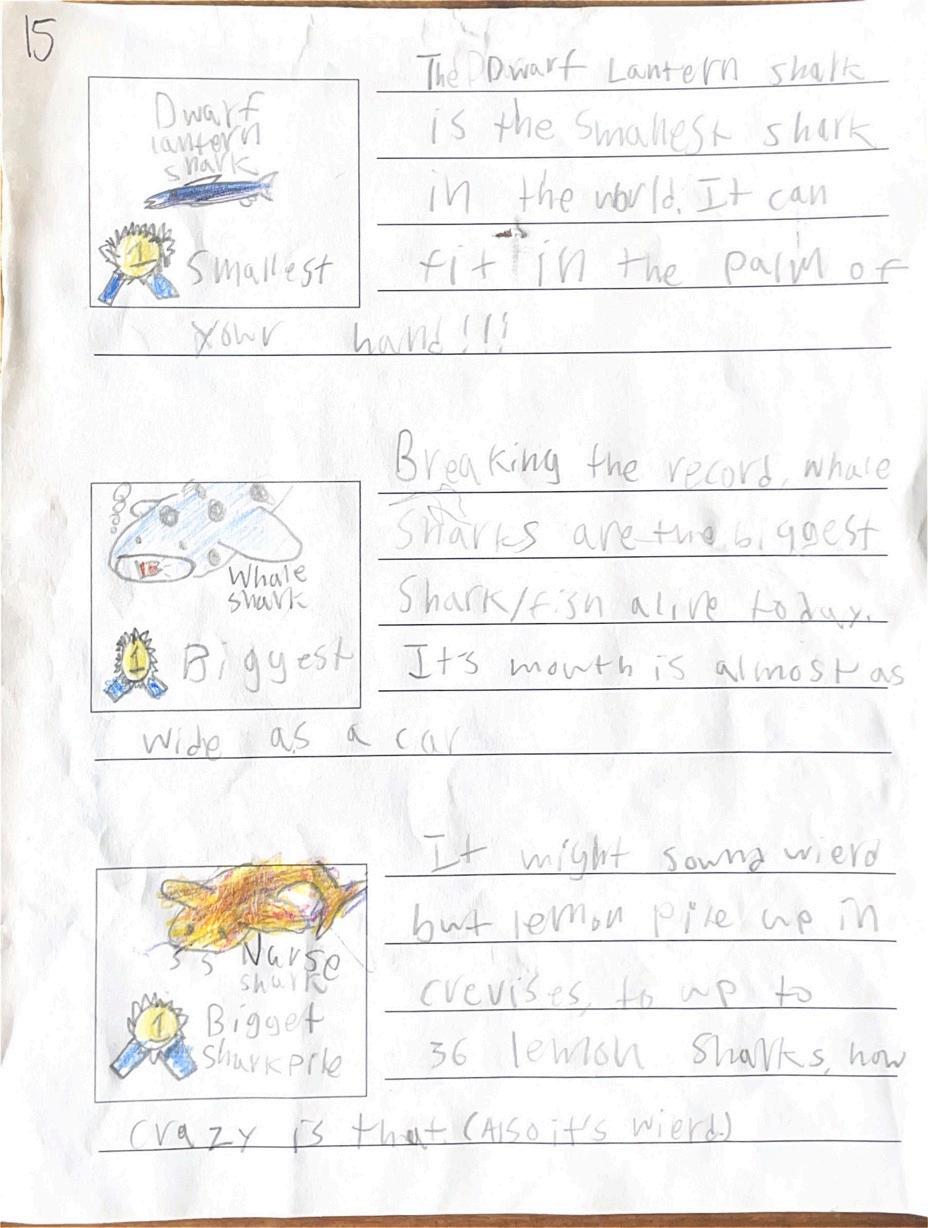 15
Dwarf
lantern
shark
Smallest
The Dwarf Lantern shark
is the smallest shark
in the world. It can
fit in the palm of
your hand!!!
Whale
shark
Biggest
Breaking the record, whale
Sharks are the biggest
Shark/fish alive today.
It's mouth is almost as
wide as a car
Nurse
shark
Bigget
Sharkpile
It might sound wierd
but lemon pile up in
crevises, to up to
36 lemon Sharks, how
crazy is that. (Also it's wierd.)